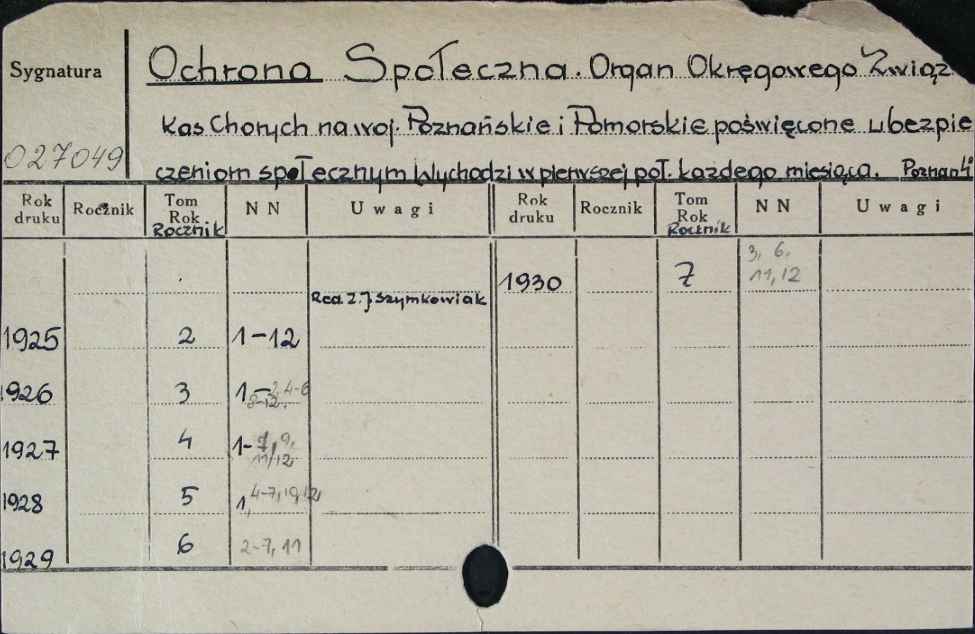 Sygnatura
027049
Ochrona Społeczna. Organ Okręgowego Związ
Kas Chorych na woj. Poznańskie i Pomorskie poświęcone ubezpie
czeniom społecznym Wychodzi w pierwszej poł. każdego miesiąca. Poznań
Rok druku Rocznik Tom Rok Rocznik NN Uwagi Rok druku Rocznik Tom Rok Rocznik NN Uwagi
Red. Z. J. Szymkowiak 1930 7 3, 6, 11, 12
1925 2 1-12
1926 3 1, 2, 4-6 8-12
1927 4 1-7, 9, 11/12
1928 5 1, 4-7, 10, 12
1929 6 2-7, 11